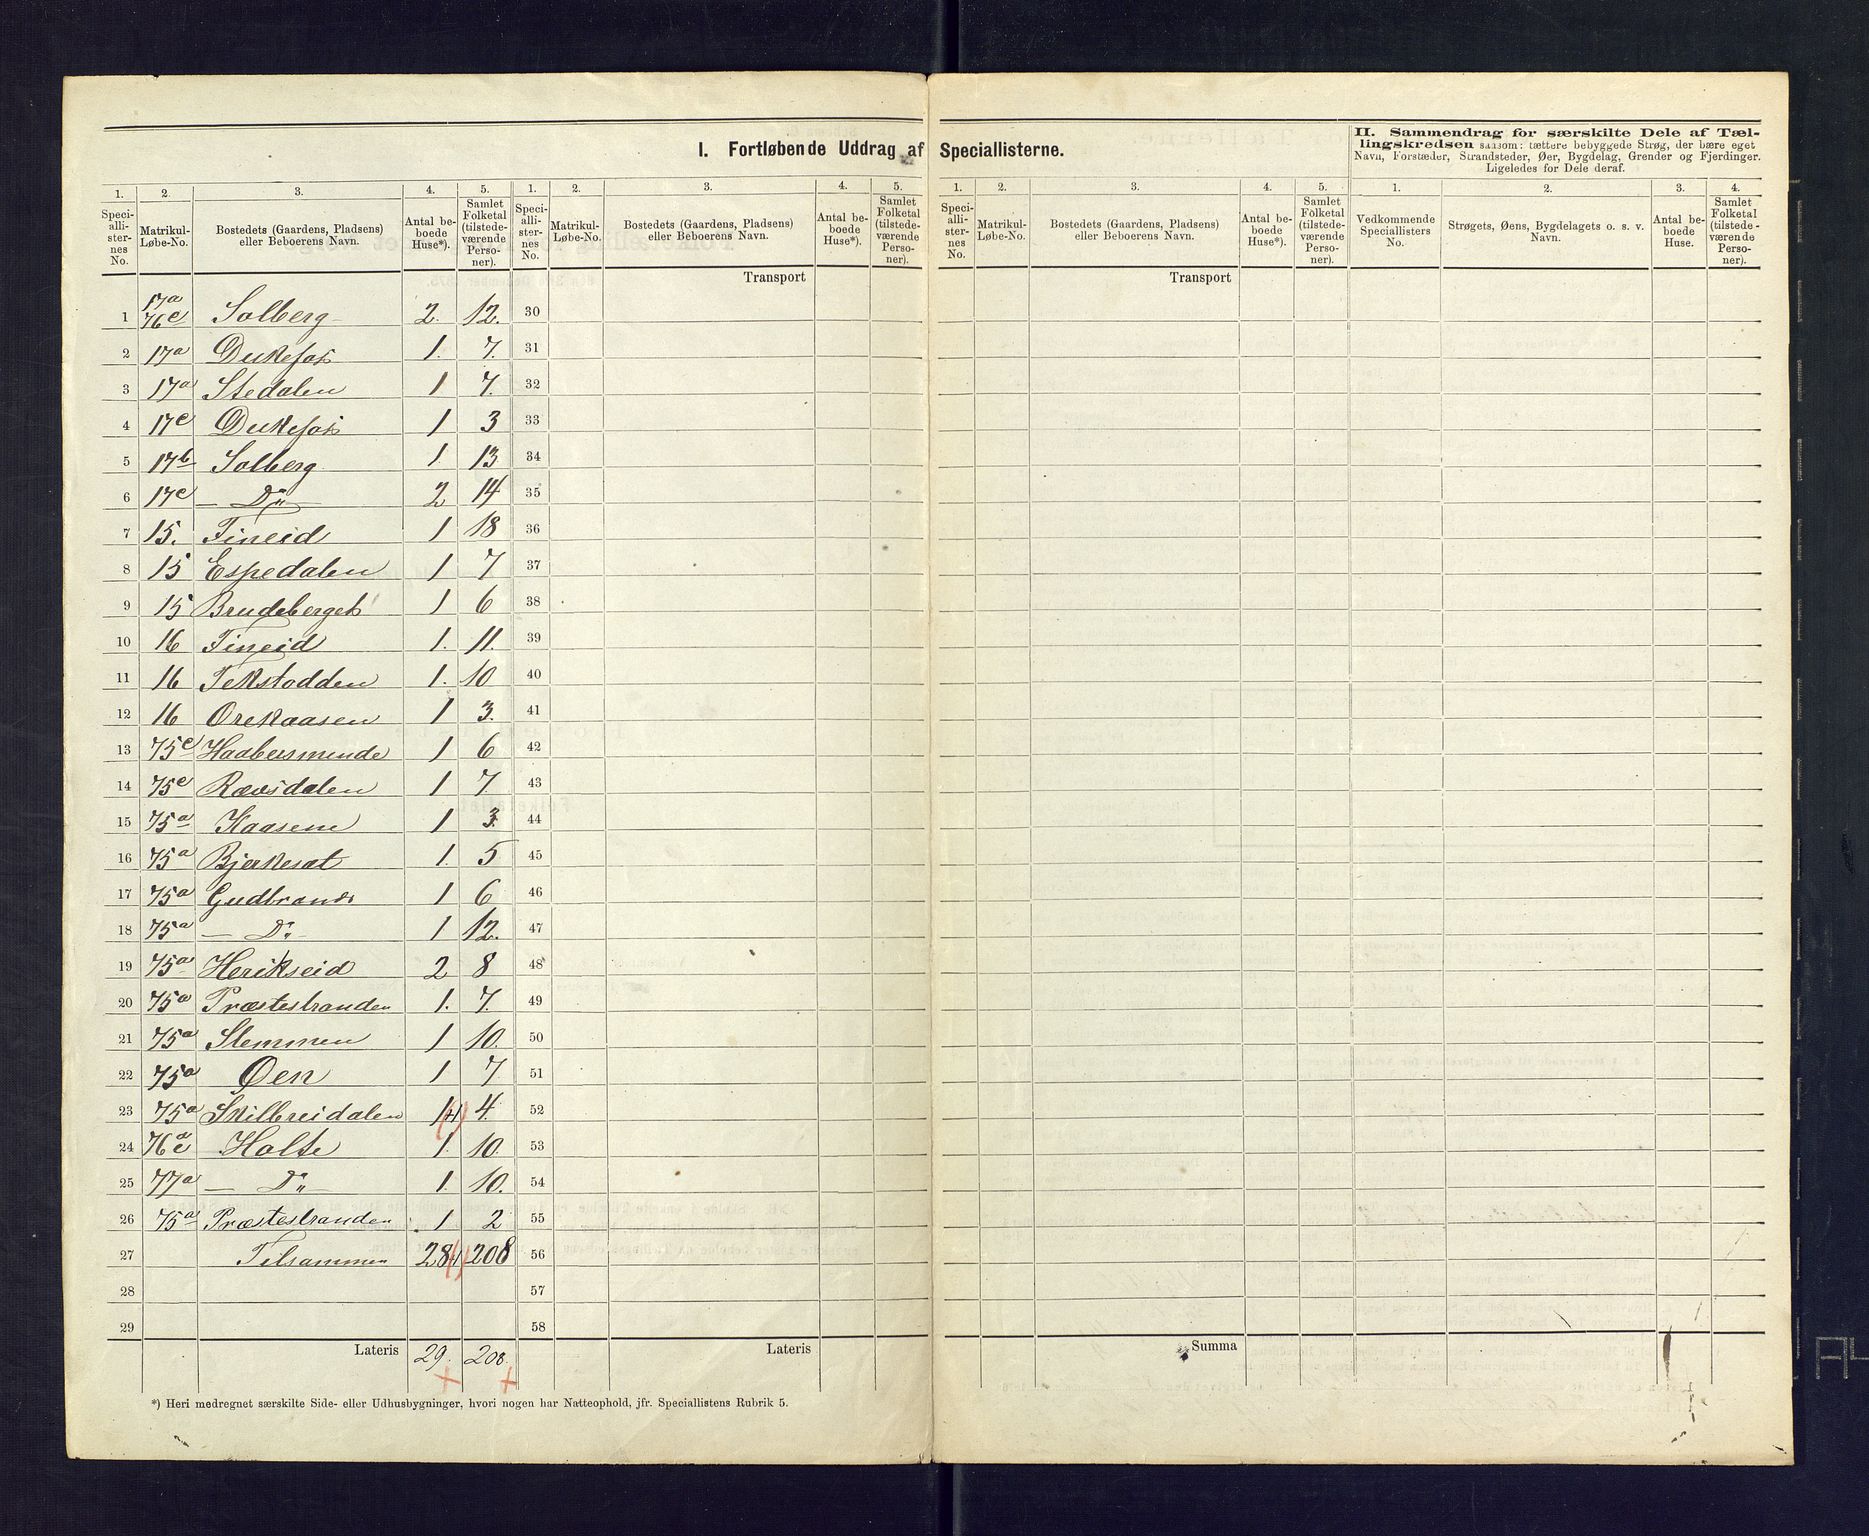 I. Fortløbende Uddrag af Speciallisterne.
II. Sammendrag for særskilte Dele af Tællingskredsen saasom: tættere bebyggede Strøg, der bære eget Navn, Forstæder, Strandsteder, Øer, Bygdelag, Grender og Fjerdinger. Ligeledes for Dele deraf.
1. 2. 3. 4. 5. 1. 2. 3. 4. 5. 1. 2. 3. 4. 5. 1. 2. 3. 4.
Speciallisternes No. Matrikul-Løbe-No. Bostedets (Gaardens, Pladsens) eller Beboerens Navn. Antal beboede Huse*). Samlet Folketal (tilstedeværende Personer).
Speciallisternes No. Matrikul-Løbe-No. Bostedets (Gaardens, Pladsens) eller Beboerens Navn. Antal beboede Huse*). Samlet Folketal (tilstedeværende Personer).
Speciallisternes No. Matrikul-Løbe-No. Bostedets (Gaardens, Pladsens) eller Beboerens Navn. Antal beboede Huse*). Samlet Folketal (tilstedeværende Personer).
Vedkommende Speciallisters No. Strøgets, Øens, Bygdelagets o. s. v. Navn. Antal beboede Huse. Samlet Folketal (tilstedeværende Personer).
Transport Transport
1 17a 76c Solberg 2. 12. 30
2 17a Dukefos 1. 7. 31
3 17a Stedalen 1 7. 32
4 17c Dukefos 1 3 33
5 17b Solberg 1. 13 34
6 17c — Do — 2 14 35
7 15. Fineid 1 18 36
8 15 Espedalen 1 7 37
9 15 Brudeberget 1 6 38
10 16 Fineid 1. 11. 39
11 16 Tekstodden 1. 10 40
12 16 Orekaasen 1 3. 41
13 75c Haabesmunde 1 6 42
14 75c Rævsdalen 1 7 43
15 75a Kaasene 1 3. 44
16 75a Bjerkesæt 1. 5 45
17 75a Gudbrands 1 6 46
18 75a — Do — 1 12. 47
19 75a Herikseid 2 8 48
20 75a Præstestranden 1. 7. 49
21 75a Stemmen 1 10. 50
22 75a Øen 1 7 51
23 75a Skilbreidalen 1 4. 52
24 76a c Holte 1. 10. 53
25 77a — Do — 1. 10. 54
26 75a Præstestranden 1 2 55
27 Tilsammen 28 208 56
28 57
29 58
Lateris 29. 208. Lateris Summa
*) Heri medregnet særskilte Side- eller Udhusbygninger, hvori nogen har Natteophold, jfr. Speciallistens Rubrik 5.